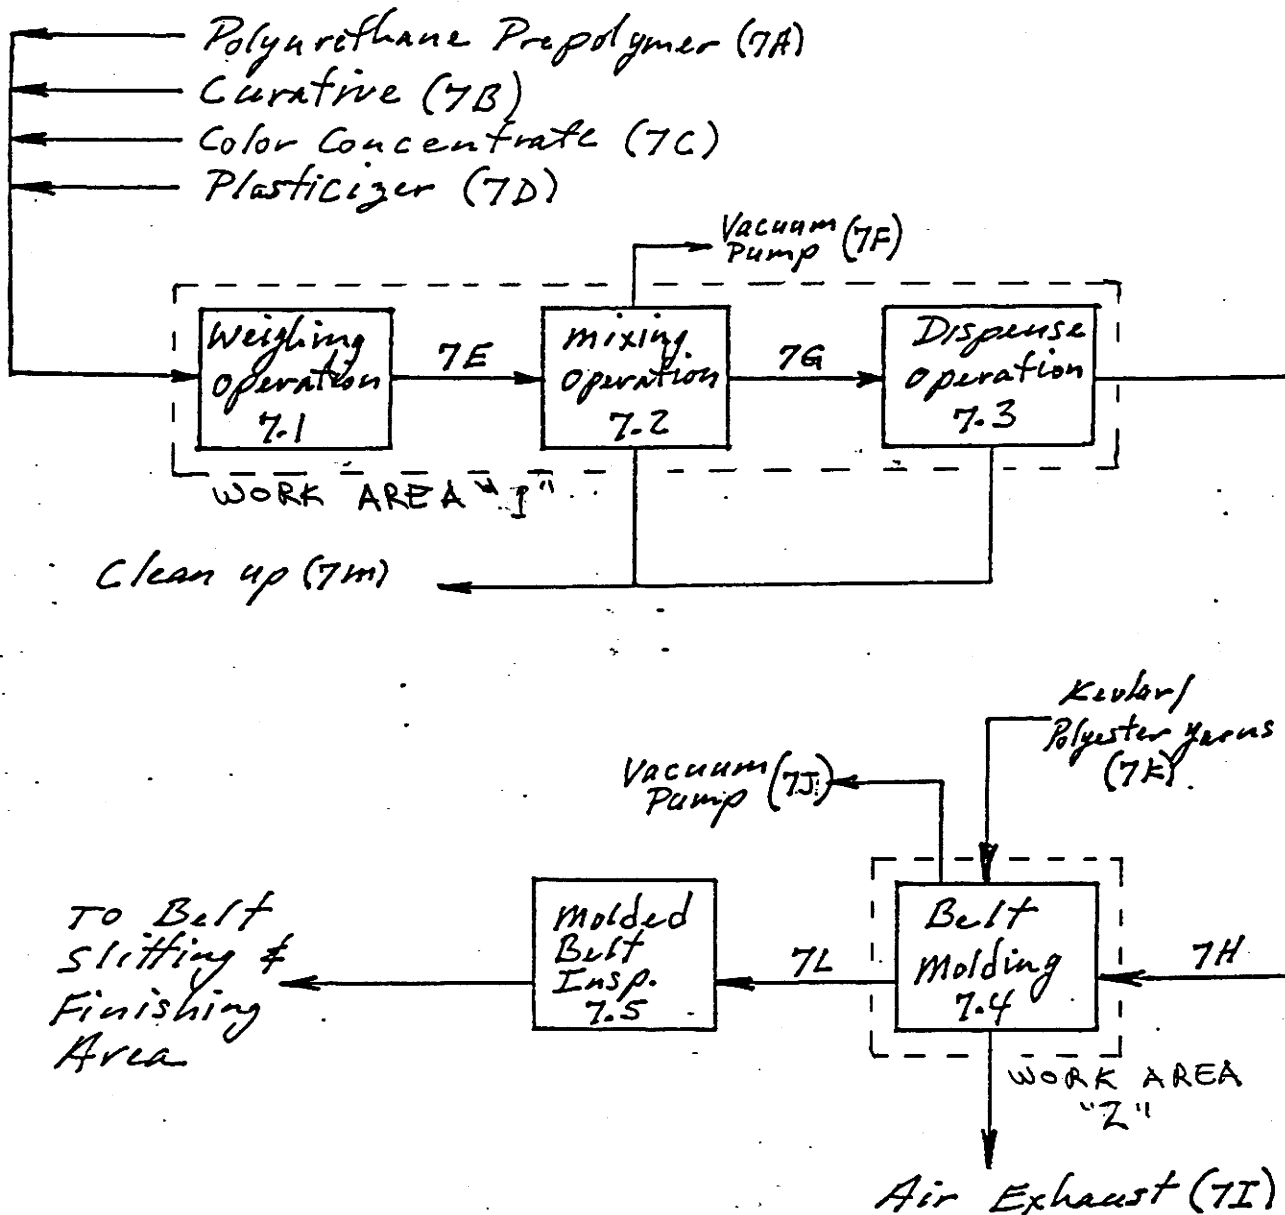 Polyurethane Prepolymer (7A)
Curative (7B)
Color Concentrate (7C)
Plasticizer (7D)
Vacuum
Pump (7F)
Weighing
Operation
7.1
7E
Mixing
Operation
7.2
7G
Dispense
Operation
7.3
WORK AREA "1"
Clean up (7M)
Kevlar/
Polyester yarns
(7K)
Vacuum
Pump (7J)
To Belt
Slitting &
Finishing
Area
Molded
Belt
Insp.
7.5
7L
Belt
Molding
7.4
7H
WORK AREA
"2"
Air Exhaust (7I)